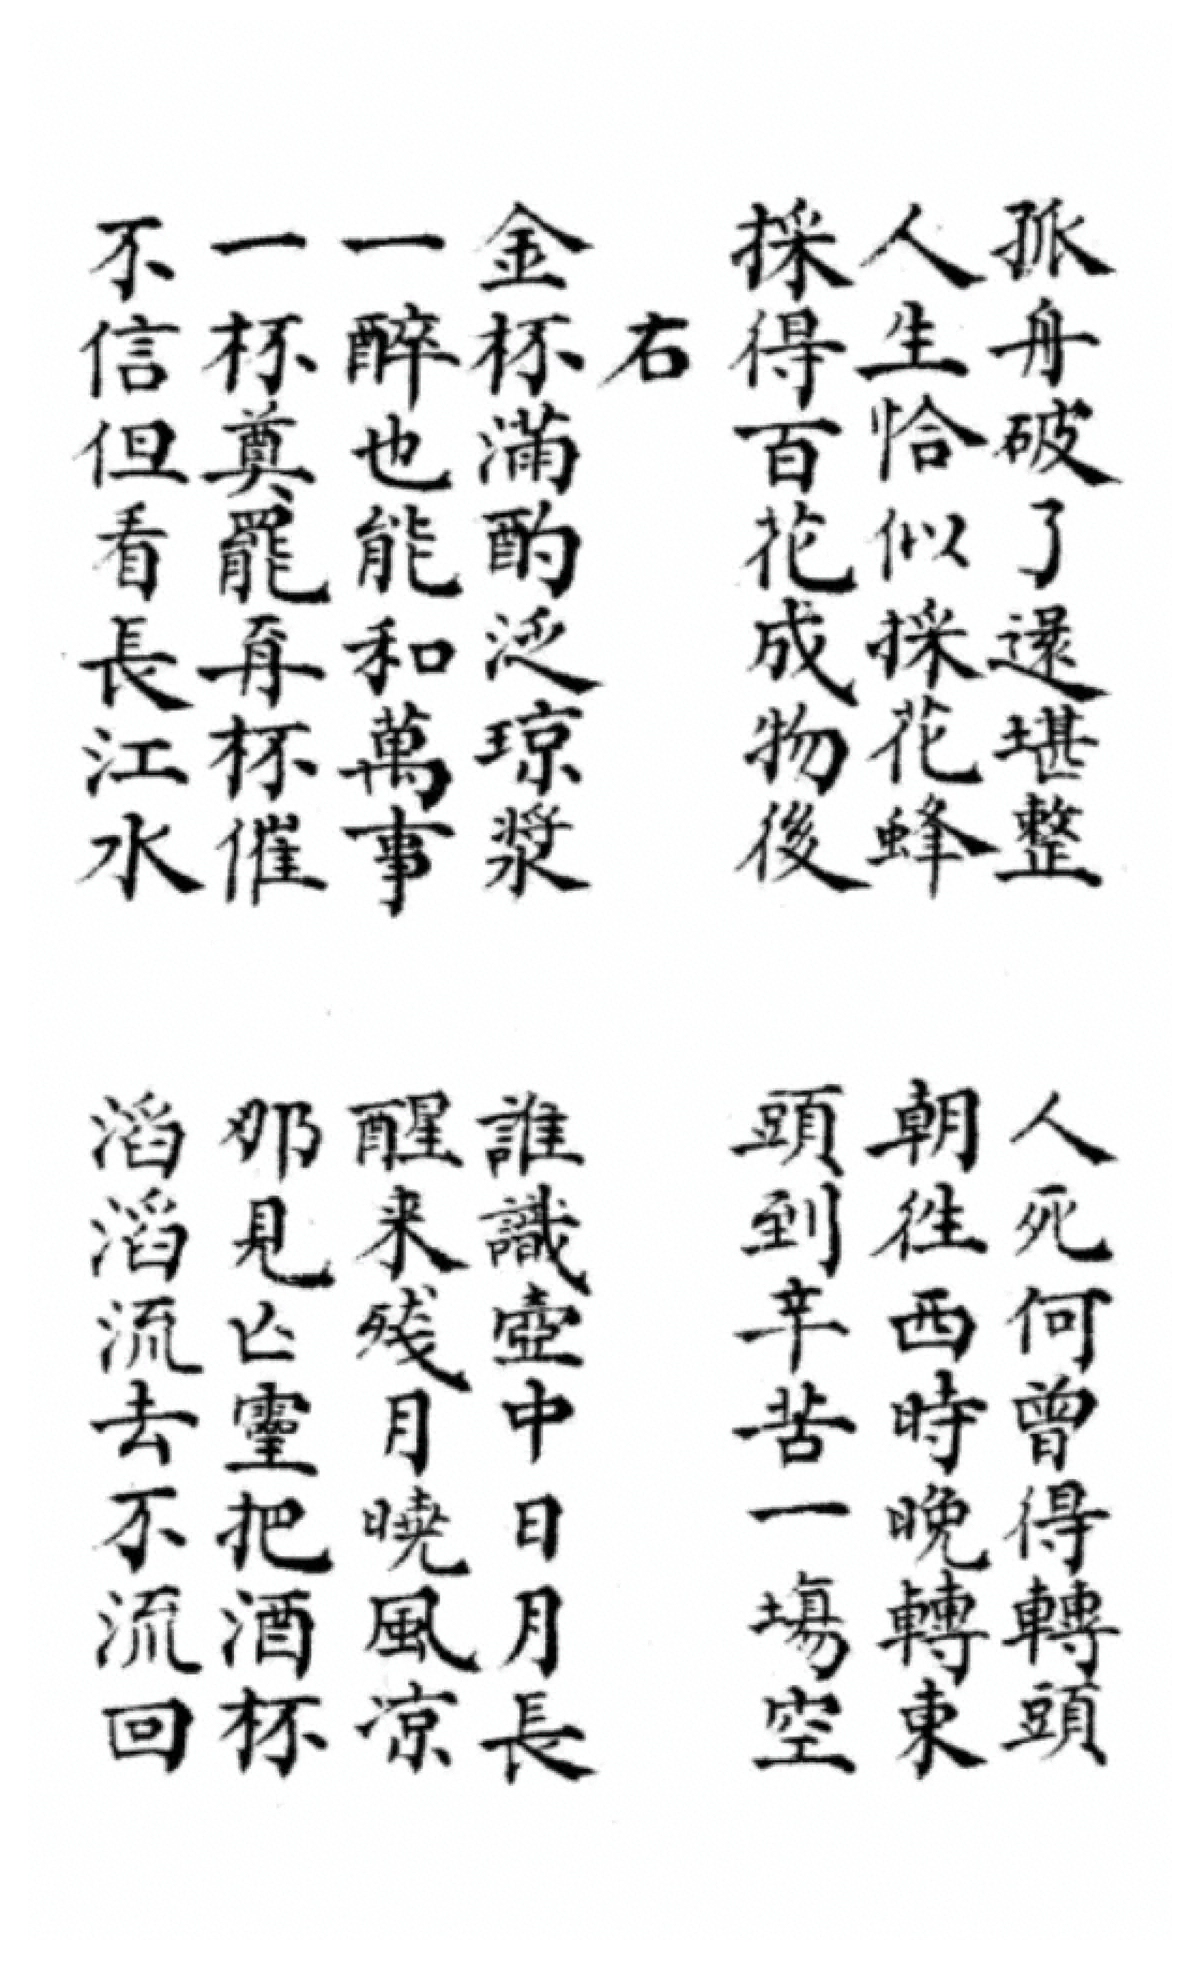 孤舟破了還堪整
人死何曾得轉頭
人生恰似採花蜂
朝徃西時晚轉東
採得百花成物後
頭到辛苦一塲空
右
金杯滿酌泛琼漿
誰識壺中日月長
一醉也能和萬事
醒来残月曉風凉
一杯奠罷再杯催
那見亡靈把酒杯
不信但看長江水
滔滔流去不流回